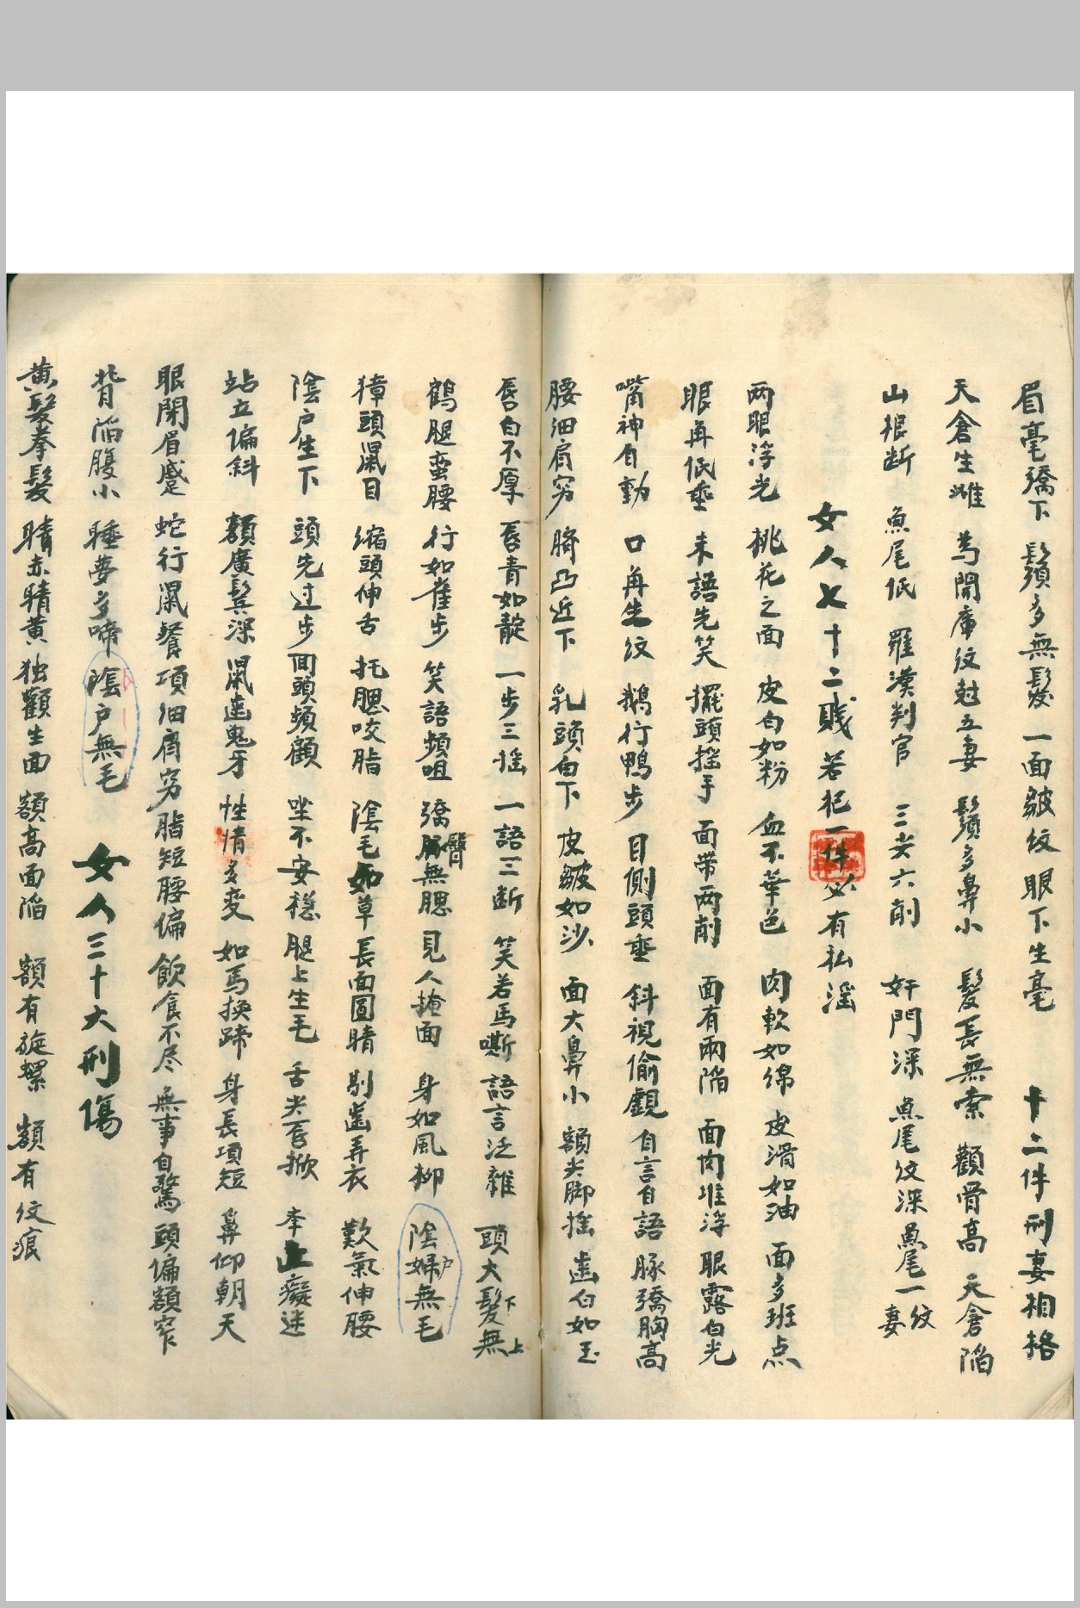 眉毫矯下 鬚多無髮 一面皺紋 眼下生毫 十二件刑妻相格
天倉生 為開庫紋尅五妻 鬚多鼻小 髮長無索 顴骨高 天倉陷
山根断 魚尾低 羅漢判官 三尖六削 奸門深 魚尾紋深 魚尾一紋一妻
女人七十二賎 若犯一件必有私淫
两眼浮光 桃花之面 皮白如粉 血不華色 肉軟如綿 皮滑如油 面多班点
眼再低垂 未語先笑 擺頭摇手 面帶两削 面有兩陷 面肉堆浮 眼露白光
嘴神自動 口再生紋 鵝行鴨步 目側頭垂 斜視偷觀 自言自語 豚矯胸高
腰细肩穷 臍凸近下 乳頭白下 皮皺如沙 面大鼻小 额尖脚摇 歯白如玉
唇白不厚 唇青如靛 一步三摇 一語三断 笑若馬嘶 語言泛雜 頭大髮無下上
鶴腿蛮腰 行如雀步 笑語頻咀 矯臀無腮 見人掩面 身如風柳 陰戶無毛
獐頭鼠目 缩頭伸舌 托腮咬脂 陰毛如草 長面圓睛 剔歯弄衣 歎氣伸腰
陰户生下 頭先过步 回頭頻顧 坐不安穏 腿上生毛 舌尖唇掀 癡迷
站立偏斜 額廣鬓深 鼠歯鬼牙 性情多变 如馬换蹄 身長項短 鼻仰朝天
眼閉眉蹙 蛇行鼠餐 項细肩穷 脂短腰偏 飲食不尽 無事自驚 頭偏額窄
背陷腹小 睡夢多啼 陰户無毛 女人三十六刑傷
黄髮拳髮 睛赤睛黄 独顴生面 額高面陷 額有旋螺 額有纹痕